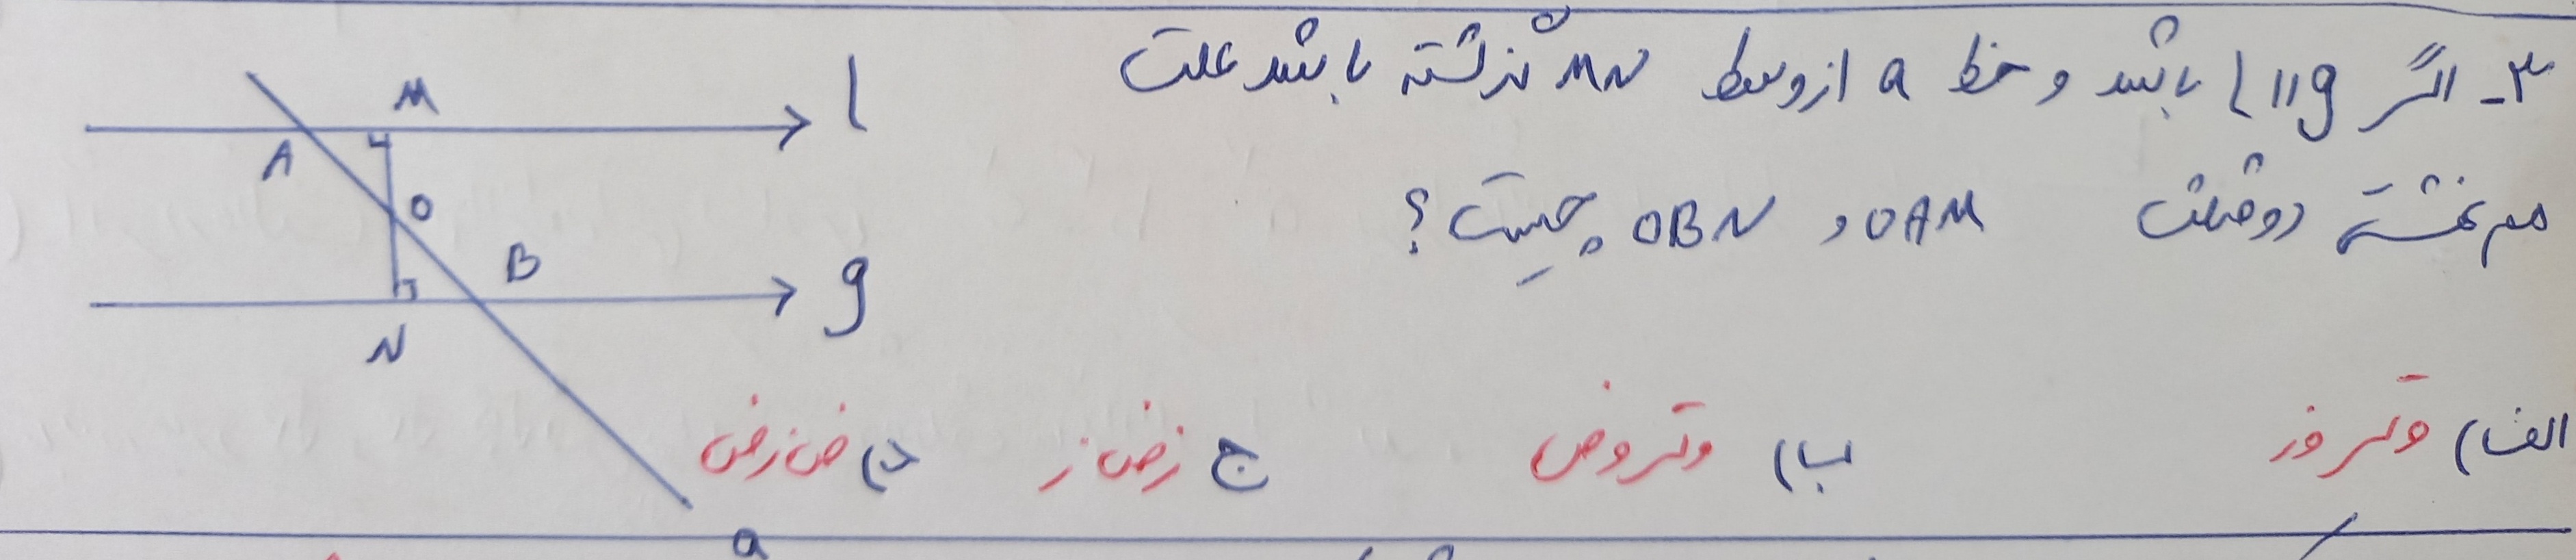 ۳- اگر l || g باشد و خط a از وسط MN گذشته باشد علت
هم نهشتی دو مثلث OAM و OBN چیست؟
M
l
A
O
B
g
N
الف) وتر و ز ب) وتر و ض ج ز ض ز د) ض ز ض
a